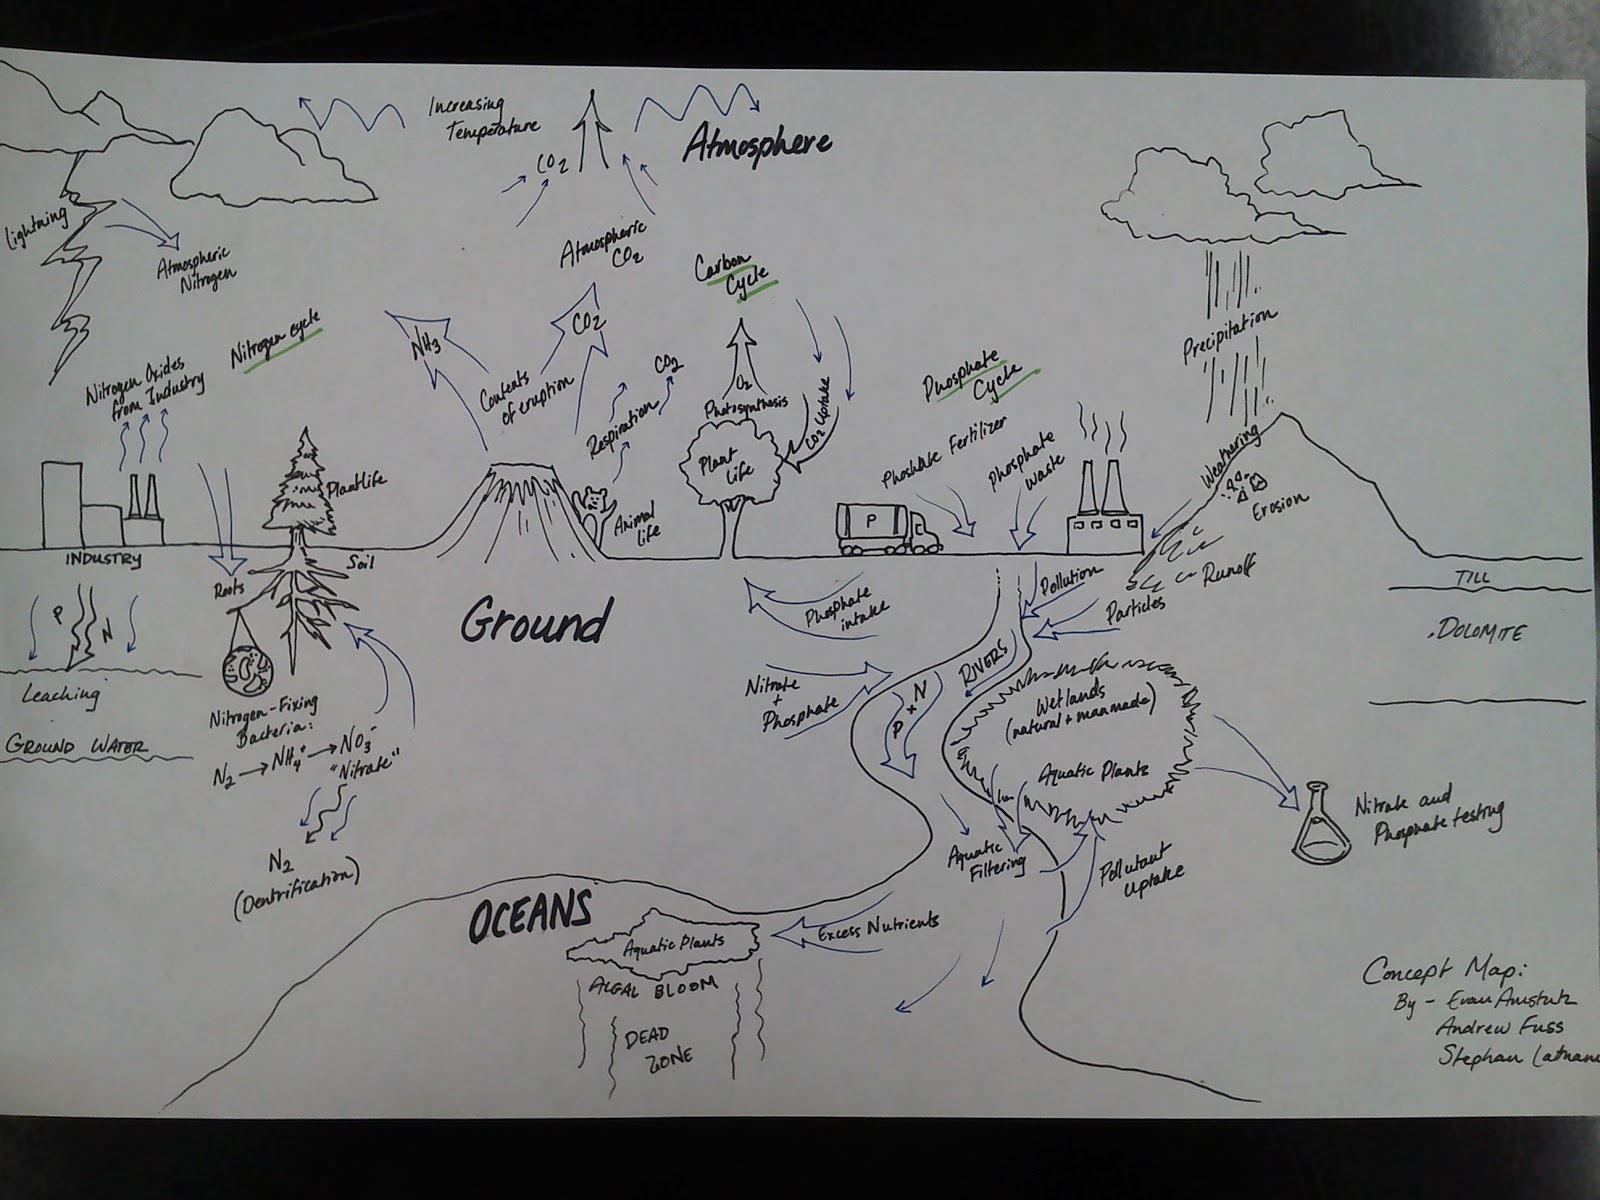 Increasing
Temperature
CO2
Atmosphere
Lightning
Atmospheric
Nitrogen
Atmospheric
CO2
Carbon
Cycle
Nitrogen cycle
NH3
CO2
Contents
of eruption
CO2
Respiration
O2
Photosynthesis
CO2 Uptake
Phosphate
Cycle
Precipitation
Nitrogen Oxides
from Industry
Phoshate Fertilizer
Phosphate
Waste
Weathering
Erosion
Plantlife
Plant
Life
Animal
life
P
INDUSTRY
Soil
Roots
P
N
Ground
Phosphate
intake
Pollution
Particles
Runoff
TILL
DOLOMITE
Leaching
GROUND WATER
Nitrogen-Fixing
Bacteria:
N2 → NH4+ → NO3-
"Nitrate"
N2
(Dentrification)
Nitrate
+
Phosphate
RIVERS
P + N
Wetlands
(natural + manmade)
Aquatic Plants
Aquatic
Filtering
Pollutant
Uptake
Nitrate and
Phosphate testing
OCEANS
Aquatic Plants
Excess Nutrients
ALGAL BLOOM
DEAD
ZONE
Concept Map:
By - Evan Amstutz
Andrew Fuss
Stephan